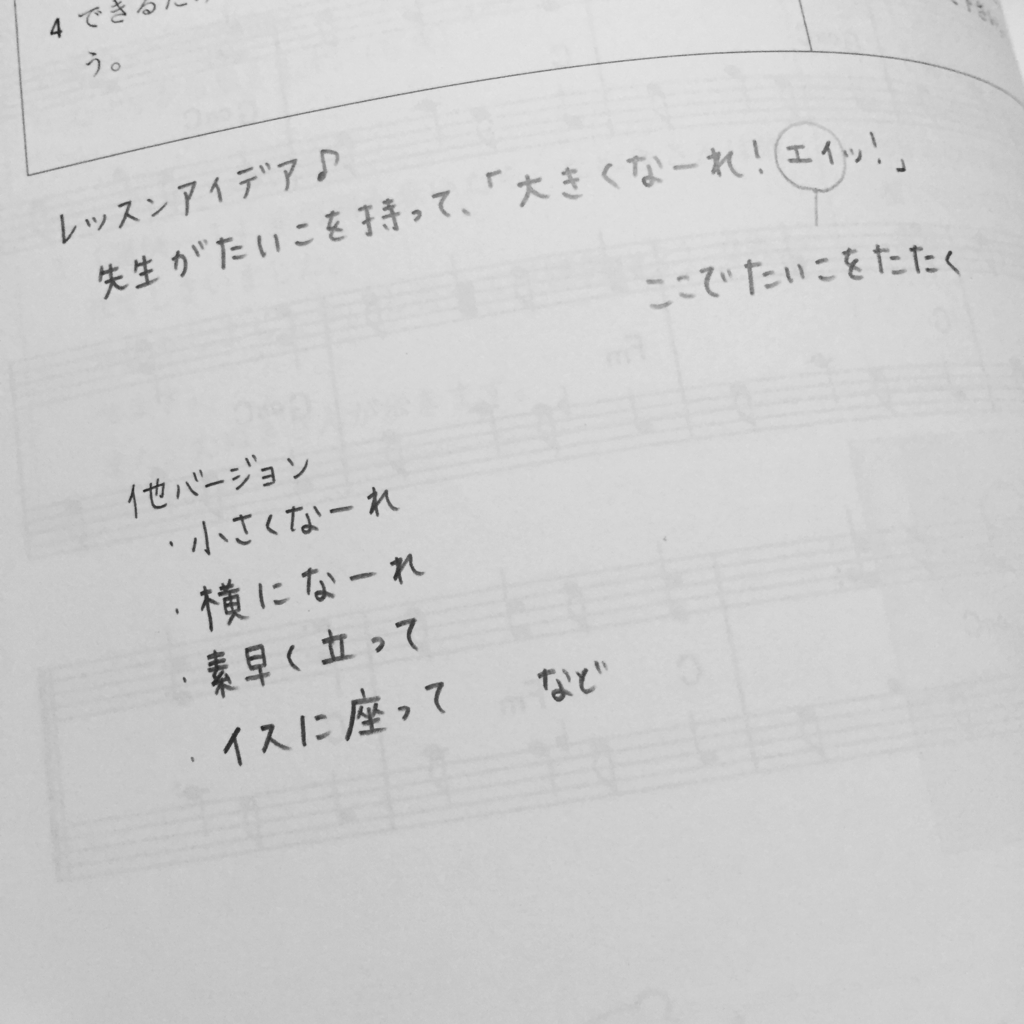 4 できるだけ
う。
レッスンアイデア♪
先生がたいこを持って、「大きくなーれ!エイッ!」
ここでたいこをたたく
他バージョン
・小さくなーれ
・横になーれ
・素早く立って
・イスに座って など